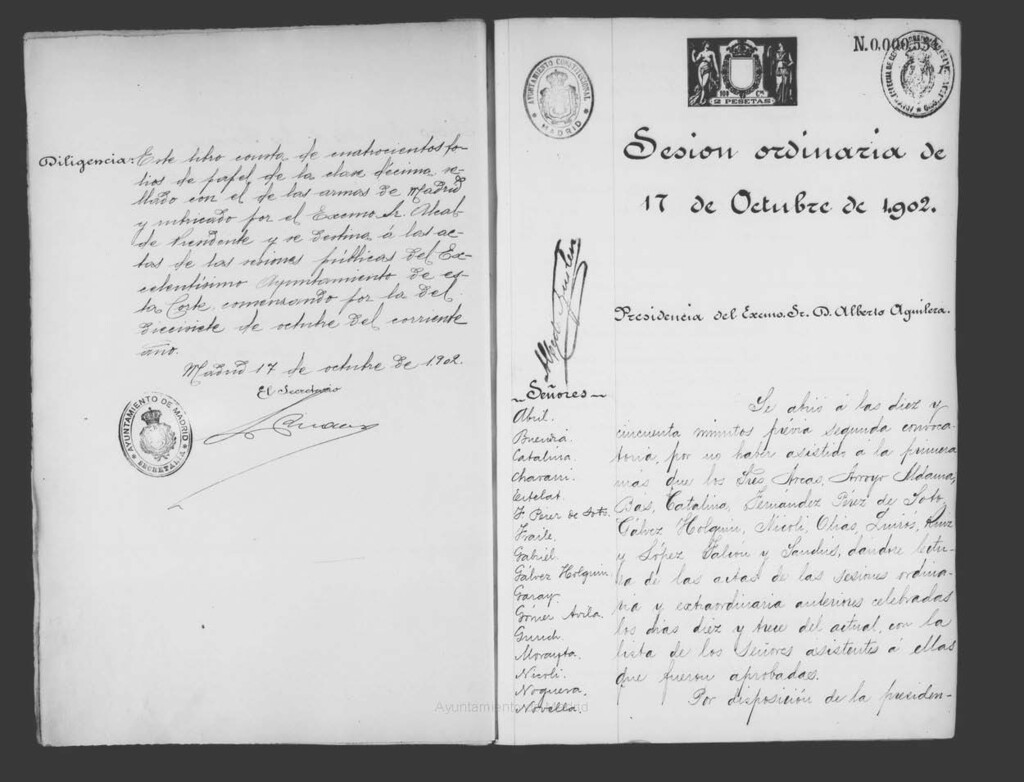 Diligencia: Este libro consta de cuatrocientos fo-
lios de papel de la clase décima se-
llado con el de las armas de Madrid
y rubricado por el Excmo. Sr. Alcal-
de Presidente y se destina á las ac-
tas de las sesiones públicas del Ex-
celentísimo Ayuntamiento de es-
ta Corte, comenzando por la del
diecisiete de octubre del corriente
año.
Madrid 17 de octubre de 1902.
El Secretario
AYUNTAMIENTO DE MADRID
SECRETARÍA
AYUNTAMIENTO CONSTITUCIONAL
MADRID
2 PESETAS
N.0.000.551
Sesion ordinaria de
17 de Octubre de 1.902.
Presidencia del Excmo. Sr. D. Alberto Aguilera.
Señores
Abril.
Buendía.
Catalina.
Chavarri.
F. Perez de Soto.
Fraile.
Gabriel.
Gálvez Holguin
Garay.
Gómez Avila.
Morayta.
Nicoli.
Noguera.
Novella.
Se abrió á las diez y
cincuenta minutos prévia segunda convoca-
toria, por no haber asistido á la primera
más que los Sres. Arcas, Arroyo Aldama,
Bas, Catalina, Fernández Pérez de Soto,
Gálvez Holguin, Nicoli, Olias, Quirós, Ruiz
y López Falcón y Sanchis, dándose lectu-
ra de las actas de las sesiones ordina-
ria y extraordinaria anteriores celebradas
los dias diez y trece del actual, con la
lista de los Señores asistentes á ellas
que fueron aprobadas.
Por disposición de la presiden-
Ayuntamiento de Madrid